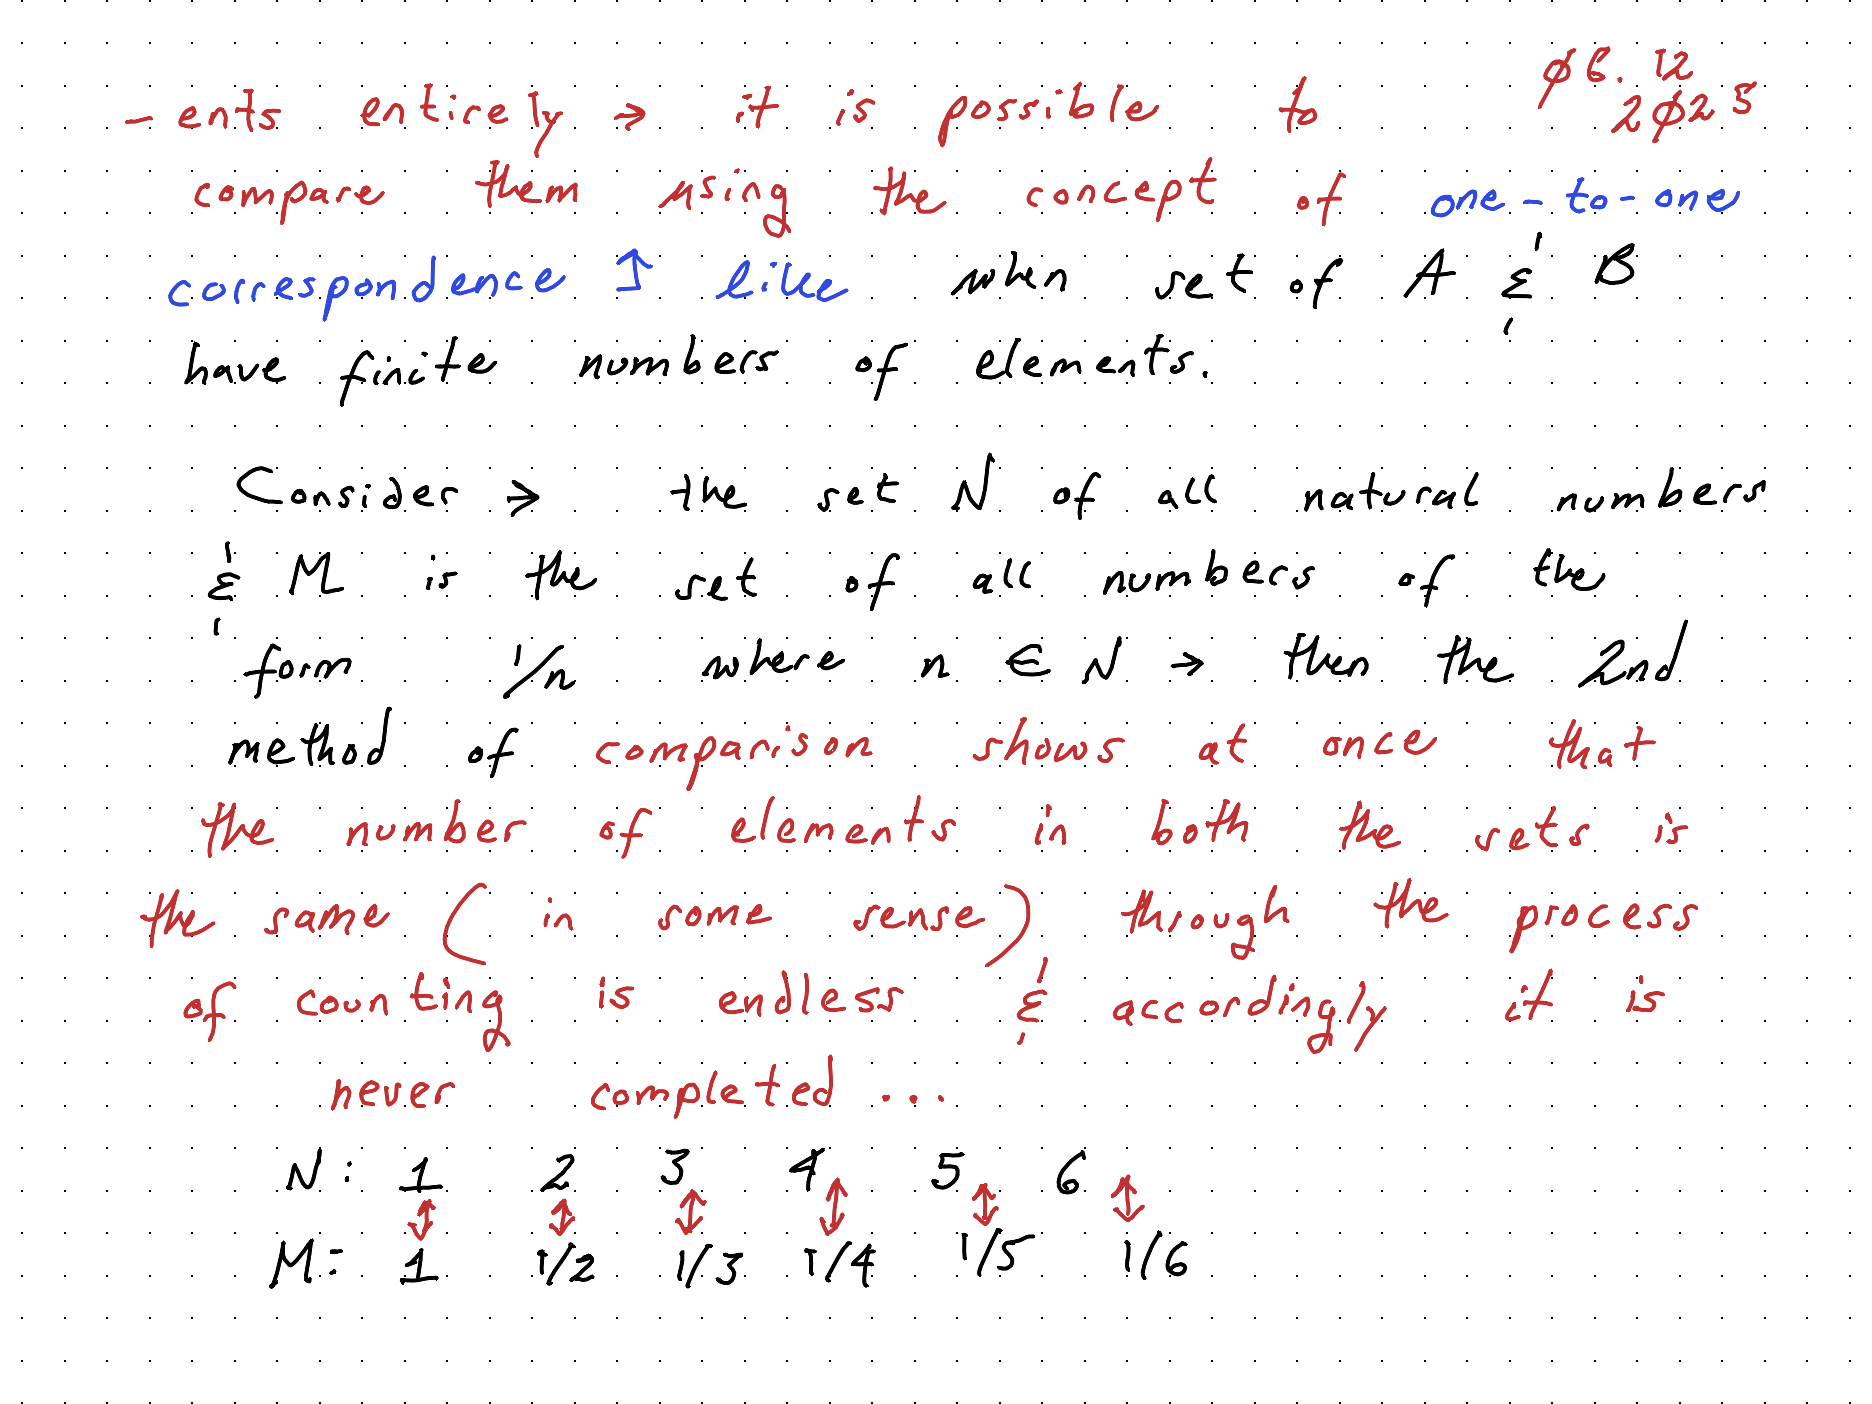 ø6.12
2ø25
- ents entirely → it is possible to
compare them using the concept of one-to-one
correspondence ↑ like when set of A & B
have finite numbers of elements.
Consider → the set N of all natural numbers
& M is the set of all numbers of the
form 1/n where n ∈ N → then the 2nd
method of comparison shows at once that
the number of elements in both the sets is
the same (in some sense) through the process
of counting is endless & accordingly it is
never completed ...
N: 1 2 3 4 5 6
↕ ↕ ↕ ↕ ↕ ↕
M: 1 1/2 1/3 1/4 1/5 1/6